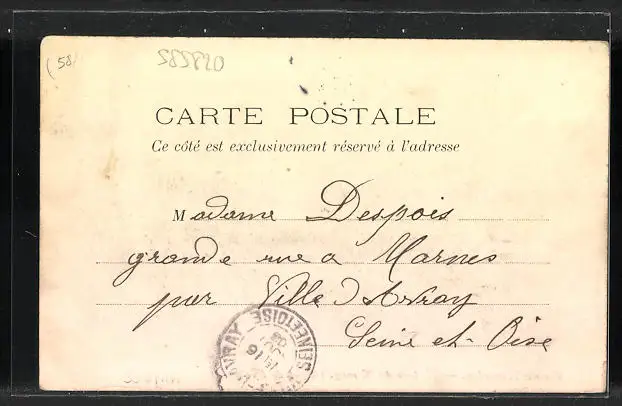 (58
585820
CARTE POSTALE
Ce côté est exclusivement réservé à l'adresse
Madame Despois
grande rue a Marnes
par Ville d'Avray
Seine et-Oise
SEINE ET OISE
AVRAY
16